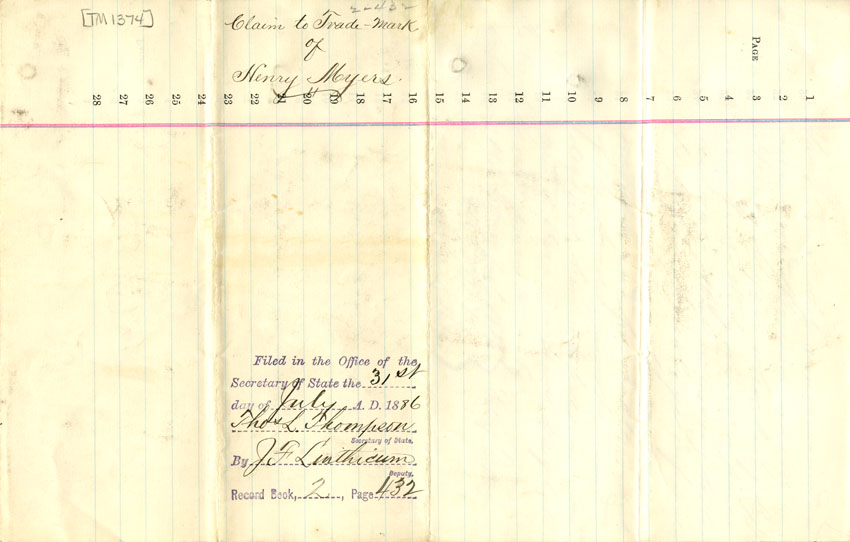 [TM 1374]
2-432
Claim to Trade-Mark
of
Henry Myers.
PAGE
1
2
3
4
5
6
7
8
9
10
11
12
13
14
15
16
17
18
19
20
21
22
23
24
25
26
27
28
Filed in the Office of the
Secretary of State the 31st
day of July A. D. 1886
Thos L. Thompson
Secretary of State.
By J F Linthicum
Deputy.
Record Book, 2, Page 432